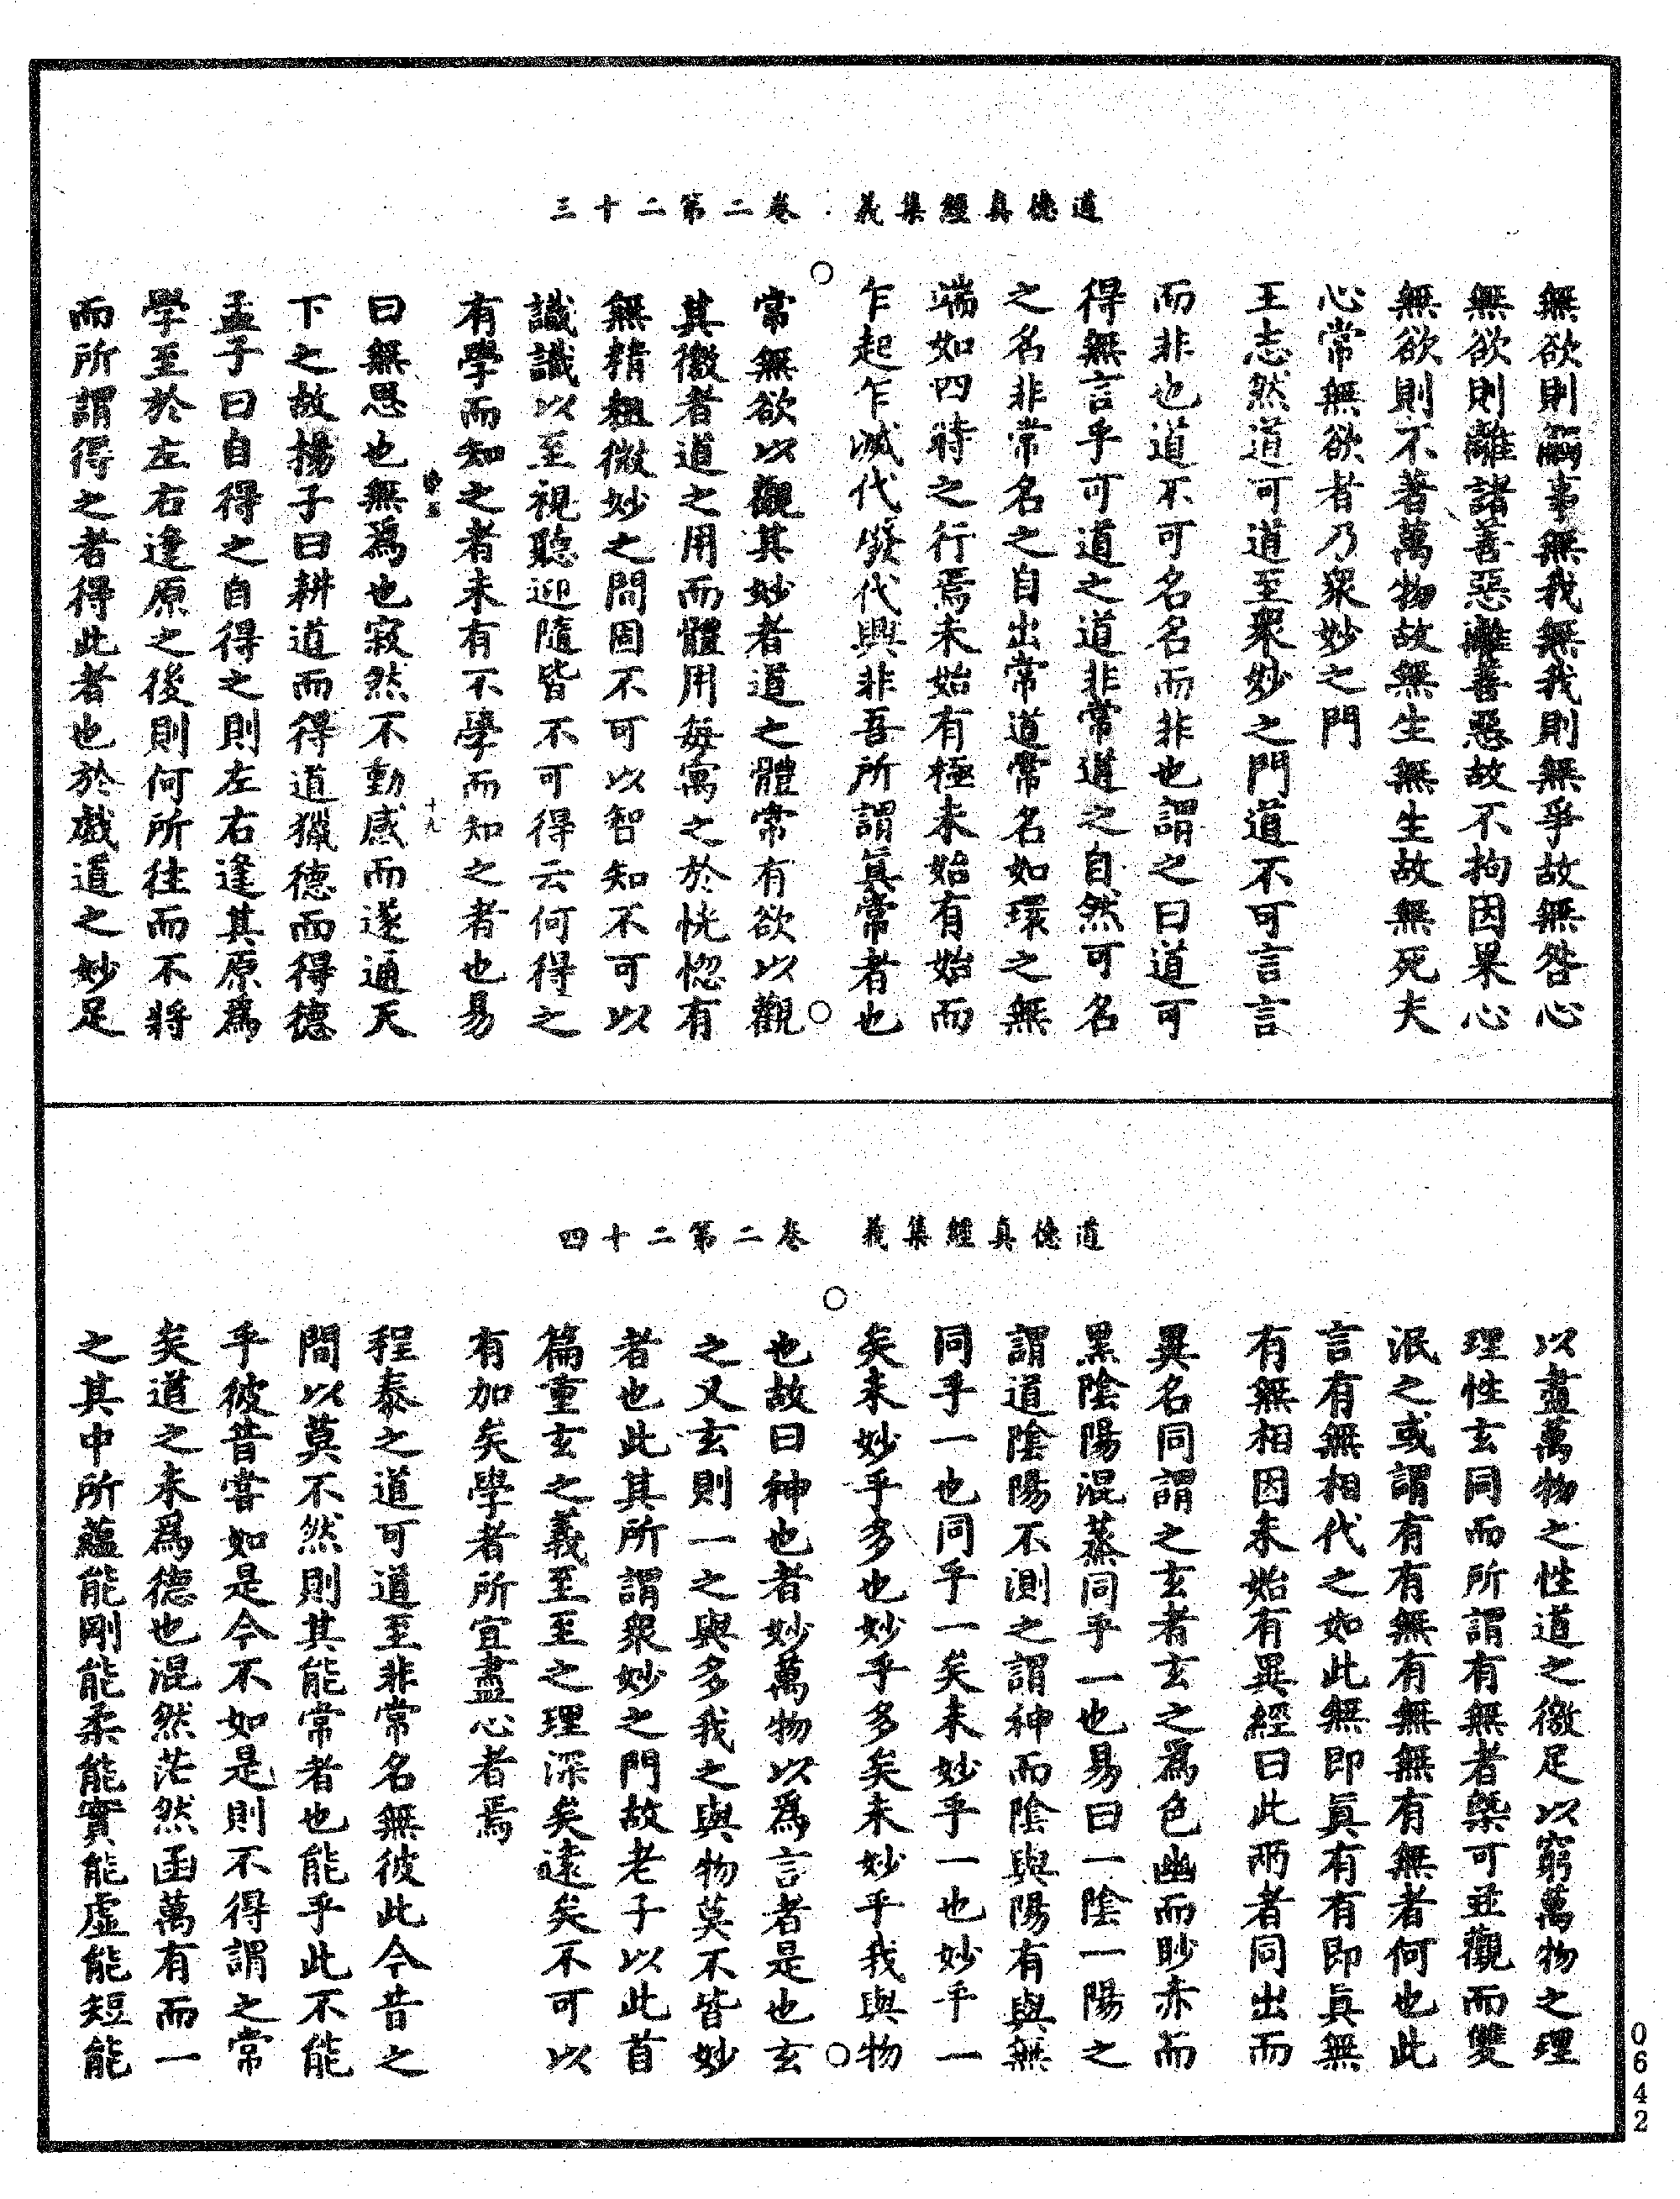 道德真經集義 卷二第二十三
無欲則無事無我無我則無爭故無咎心
無欲則離諸善惡離善惡故不拘因果心
無欲則不著萬物故無生無生故無死夫
心常無欲者乃衆妙之門
王志然道可道至衆妙之門道不可言言
而非也道不可名名而非也謂之曰道可
得無言乎可道之道非常道之自然可名
之名非常名之自出常道常名如環之無
端如四時之行焉未始有極未始有始而
乍起乍滅代廢代興非吾所謂眞常者也
常無欲以觀其妙者道之體常有欲以觀
其徼者道之用而體用每寓之於恍惚有
無精粗微妙之間固不可以智知不可以
識識以至視聽迎隨皆不可得云何得之
有學而知之者未有不學而知之者也易
十九
曰無思也無爲也寂然不動感而遂通天
下之故揚子曰耕道而得道獵德而得德
孟子曰自得之自得之則左右逢其原爲
學至於左右逢原之後則何所往而不將
而所謂得之者得此者也於戲道之妙足
道德真經集義 卷二第二十四
以盡萬物之性道之徼足以窮萬物之理
理性玄同而所謂有無者槩可並觀而雙
泯之或謂有有無有無無有無者何也此
言有無相代之如此無即眞有有即眞無
有無相因未始有異經曰此兩者同出而
異名同謂之玄者玄之爲色幽而眇赤而
黑陰陽混蒸同乎一也易曰一陰一陽之
謂道陰陽不測之謂神而陰與陽有與無
同乎一也同乎一矣未妙乎一也妙乎一
矣未妙乎多也妙乎多矣未妙乎我與物
也故曰神也者妙萬物以爲言者是也玄
之又玄則一之與多我之與物莫不皆妙
者也此其所謂衆妙之門故老子以此首
篇重玄之義至至之理深矣遠矣不可以
有加矣學者所宜盡心者焉
程泰之道可道至非常名無彼此今昔之
間以莫不然則其能常者也能乎此不能
乎彼昔嘗如是今不如是則不得謂之常
矣道之未爲德也混然茫然函萬有而一
之其中所蘊能剛能柔能實能虛能短能
0642